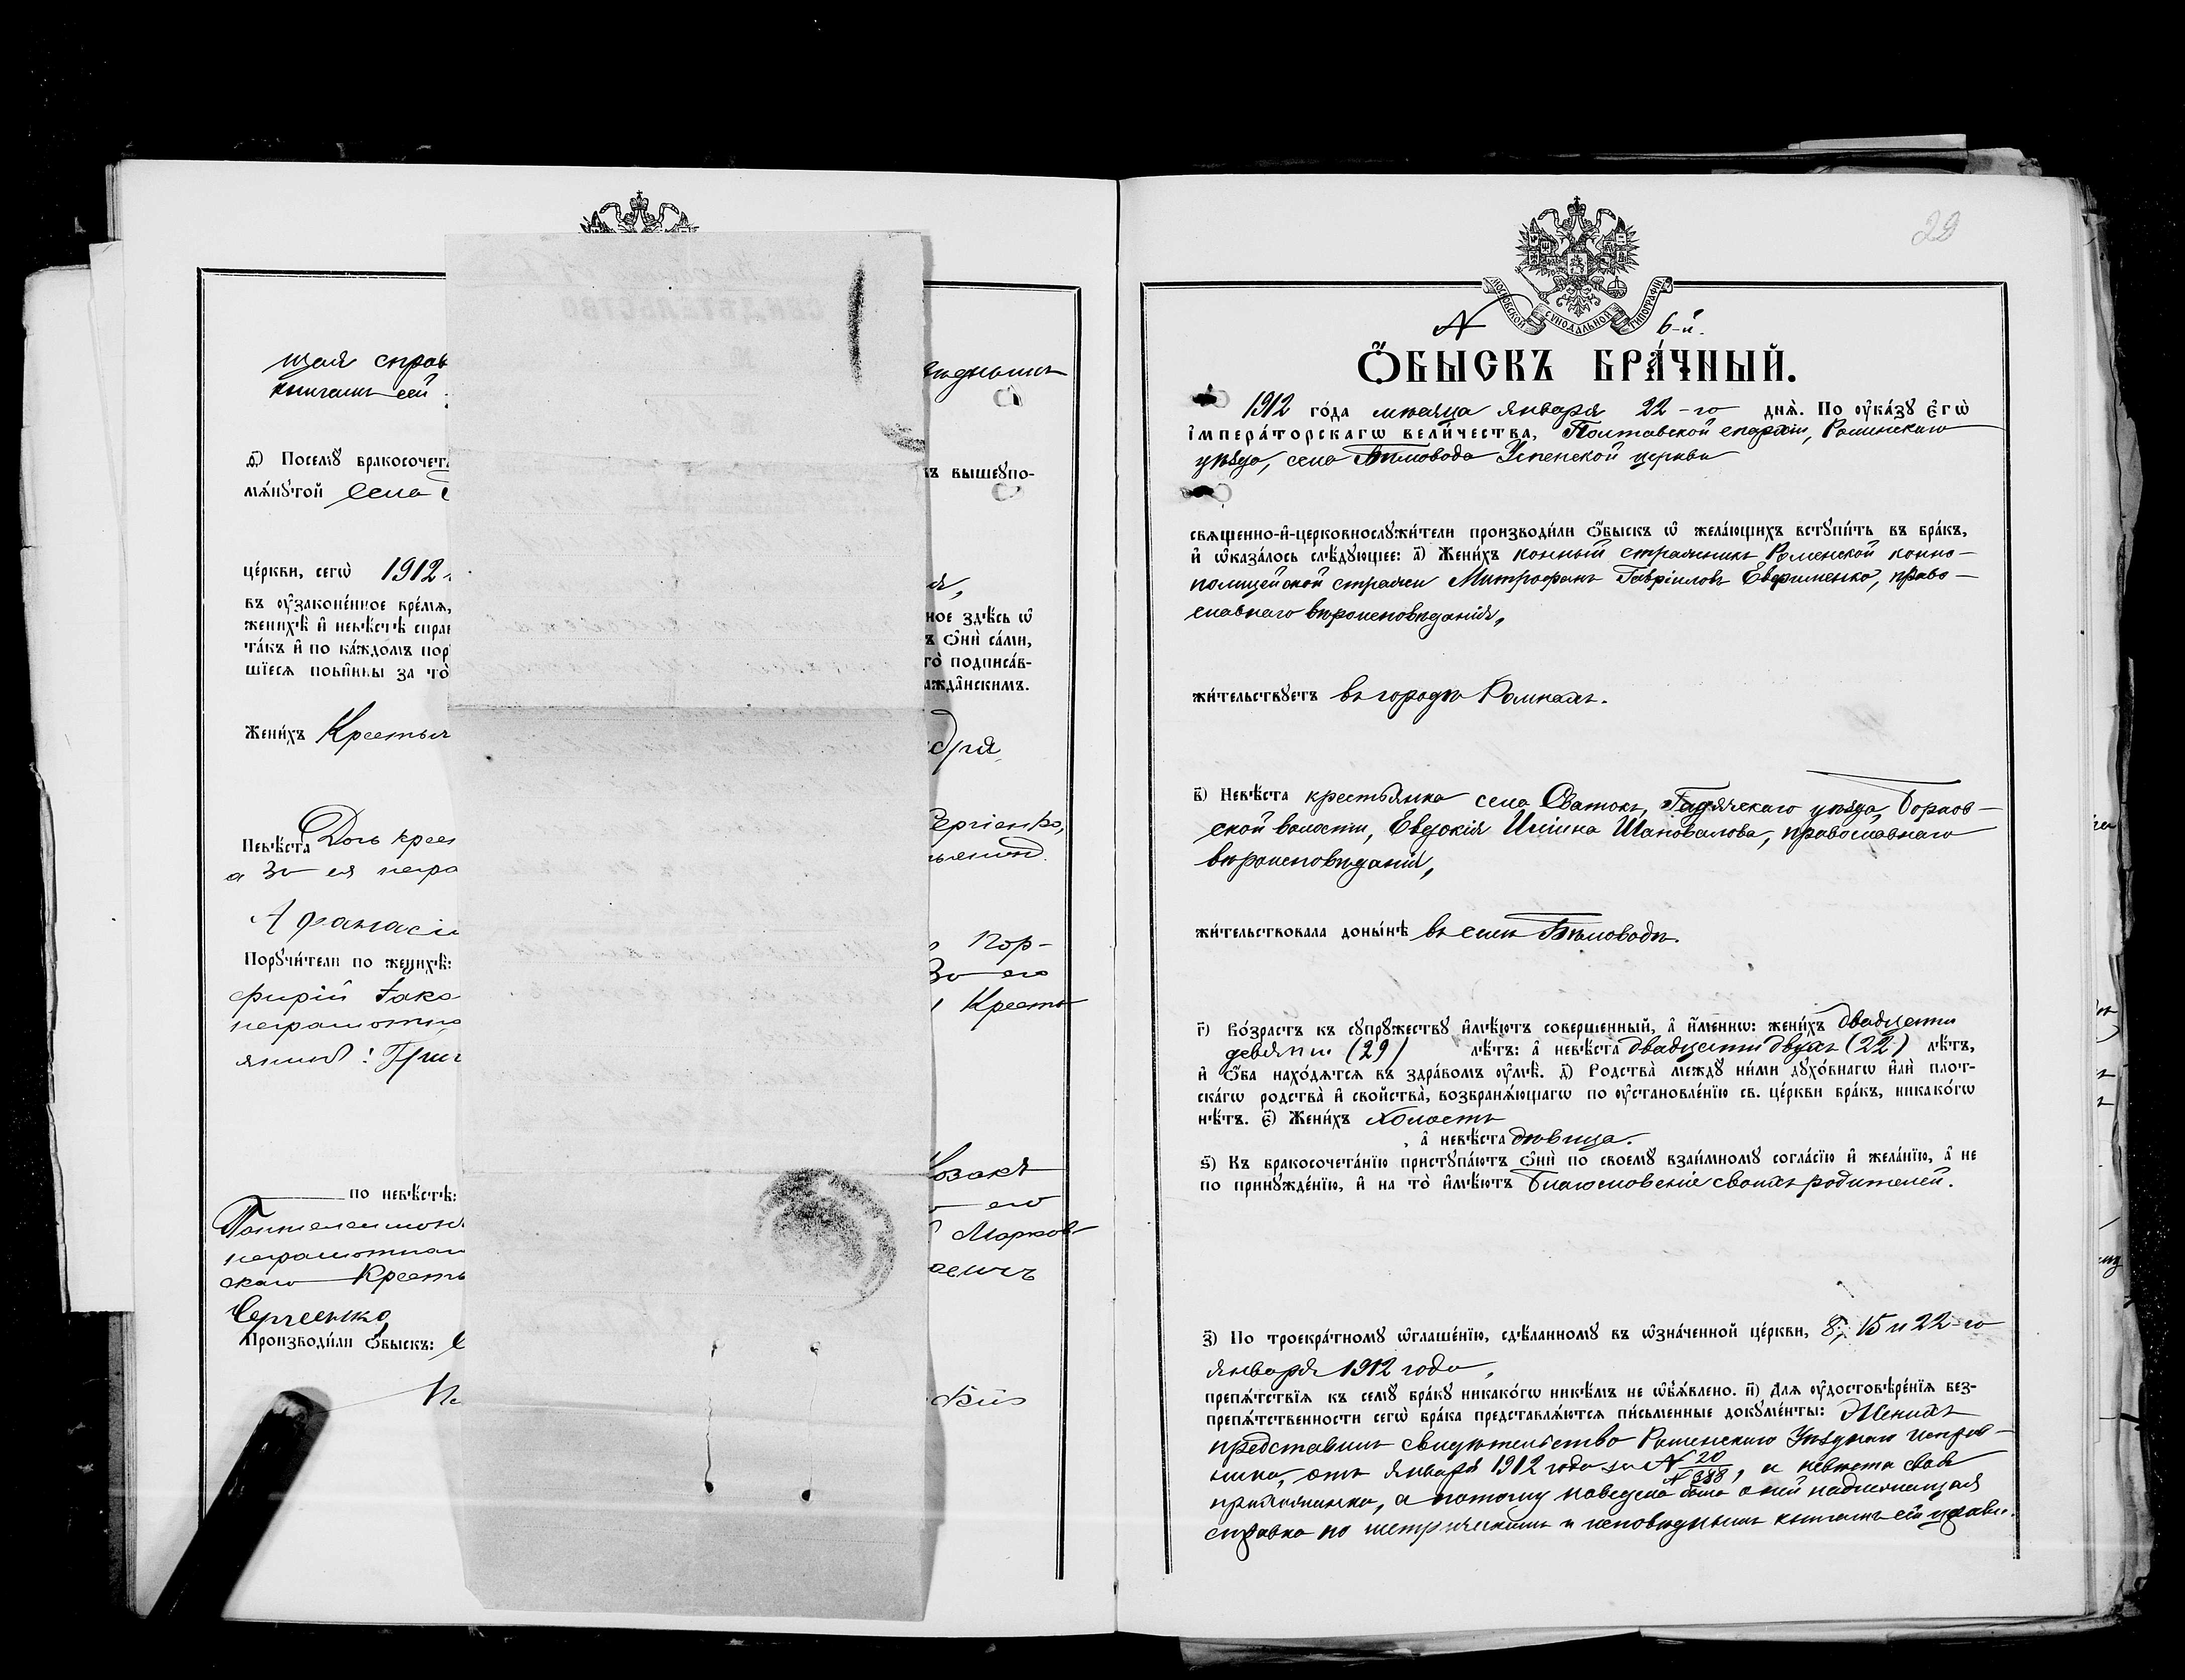 щая справ
книгамъ сей
веднымъ
д҃) Посемꙋ бракосочет
въ вышеꙋпо-
мѧ́нꙋтой села
це́ркви, сегѡ̀ 1912
въ ᲂу҆зако́ненное вре́мѧ,
ное здѣ́сь ѡ҆
женихѣ̀ и҆ невѣ́стѣ спра
ъ ѻ҆нѝ са́ми,
та́къ и҆ по ка́ждомъ пор
го̀ подписа́в-
шїесѧ пови́нны за то̀
ажда́нскимъ.
Жени́хъ Крестья
дря,
Невѣ́ста Дочь крес
Сергіенко,
а за ея негра
Афанасі
Порꙋчи́тели по женихѣ̀:
Пор-
фирій Іако
За его
неграмотно
Кресть
янинъ: Григ
Козакъ
по невѣ́стѣ:
его
Пантелеимонъ
Марков
неграмотна
скаго Кресть
Сергіенко
Производи́ли ѻ҆́быскъ:
29
Московской Сѵнодальной Типографіи
№ 6-й.
Ѻ҆́БЫСКЪ БРА́ЧНЫЙ.
1912 го́да мѣсяца января 22-го днѧ̀. По ᲂу҆ка́зꙋ є҆гѡ̀
и҆мпера́торскагѡ вели́чества, Полтавской епархіи, Роменскаго
уѣзда, села Бѣловода Успенской церкви
свѧщенно-и҆-церковнослꙋжи́тели производи́ли ѻ҆́быскъ ѡ҆ жела́ющихъ встꙋпи́ть въ бра́къ,
и҆ ѡ҆каза́лось слѣ́дꙋющее: а҃) Жени́хъ конный стражникъ Роменской конно-
полицейской стражи Митрофанъ Гавріиловъ Евфименко, право-
славнаго вѣроисповѣданія,
жи́тельствꙋетъ въ городѣ Ромнахъ.
в҃) Невѣ́ста крестьянка села Сватокъ, Гадячскаго уѣзда, Борков-
ской волости, Евдокія Иліина Шаповалова, православнаго
вѣроисповѣданія,
жи́тельствовала доны́нѣ въ селѣ Бѣловодѣ.
г҃) Во́зрастъ къ сꙋпрꙋ́жествꙋ и҆мѣ́ютъ соверше́нный, а҆ и҆́меннѡ: жени́хъ двадцати
девяти (29) лѣ́тъ: а҆ невѣ́ста двадцати двухъ (22) лѣ́тъ,
и҆ ѻ҆́ба нахо́дѧтсѧ въ здра́вомъ ᲂу҆мѣ̀. д҃) Родства̀ междꙋ ни́ми дꙋхо́внагѡ и҆лѝ плот-
ска́гѡ родства̀ и҆ сво́йства, возбранѧ́ющагѡ по ᲂу҆становле́нїю св. це́ркви бра́къ, никако́гѡ
нѣ́тъ. є҃) Жени́хъ холостъ
, а҆ невѣ́ста дѣвица.
ѕ҃) Къ бракосочета́нїю пристꙋпа́ютъ ѻ҆нѝ по своемꙋ̀ взаи́мномꙋ согла́сїю и҆ жела́нїю, а҆ не
по принꙋжде́нїю, и҆ на то̀ и҆мѣ́ютъ благословеніе своихъ родителей.
з҃) По троекра́тномꙋ ѡ҆глаше́нїю, сдѣ́ланномꙋ въ ѡ҆зна́ченной це́ркви, 8, 15 и 22-го
января 1912 года,
препѧ́тствїѧ къ семꙋ̀ бра́кꙋ никако́гѡ никѣ́мъ не ѡ҆б̾ѧ́влено. и҃) Длѧ ᲂу҆достовѣре́нїѧ без-
препѧ́тственности сегѡ̀ бра́ка представлѧ́ютсѧ пи́сьменные докꙋме́нты: Женихъ
представилъ свидѣтельство Роменскаго Уѣзднаго исправ-
ника, отъ января 1912 года за № 20 / № 388, а невѣста своя
прихожанка, а потому наведена была о ней надлежащая
справка по метрическимъ и исповѣднымъ книгамъ сей церкви.